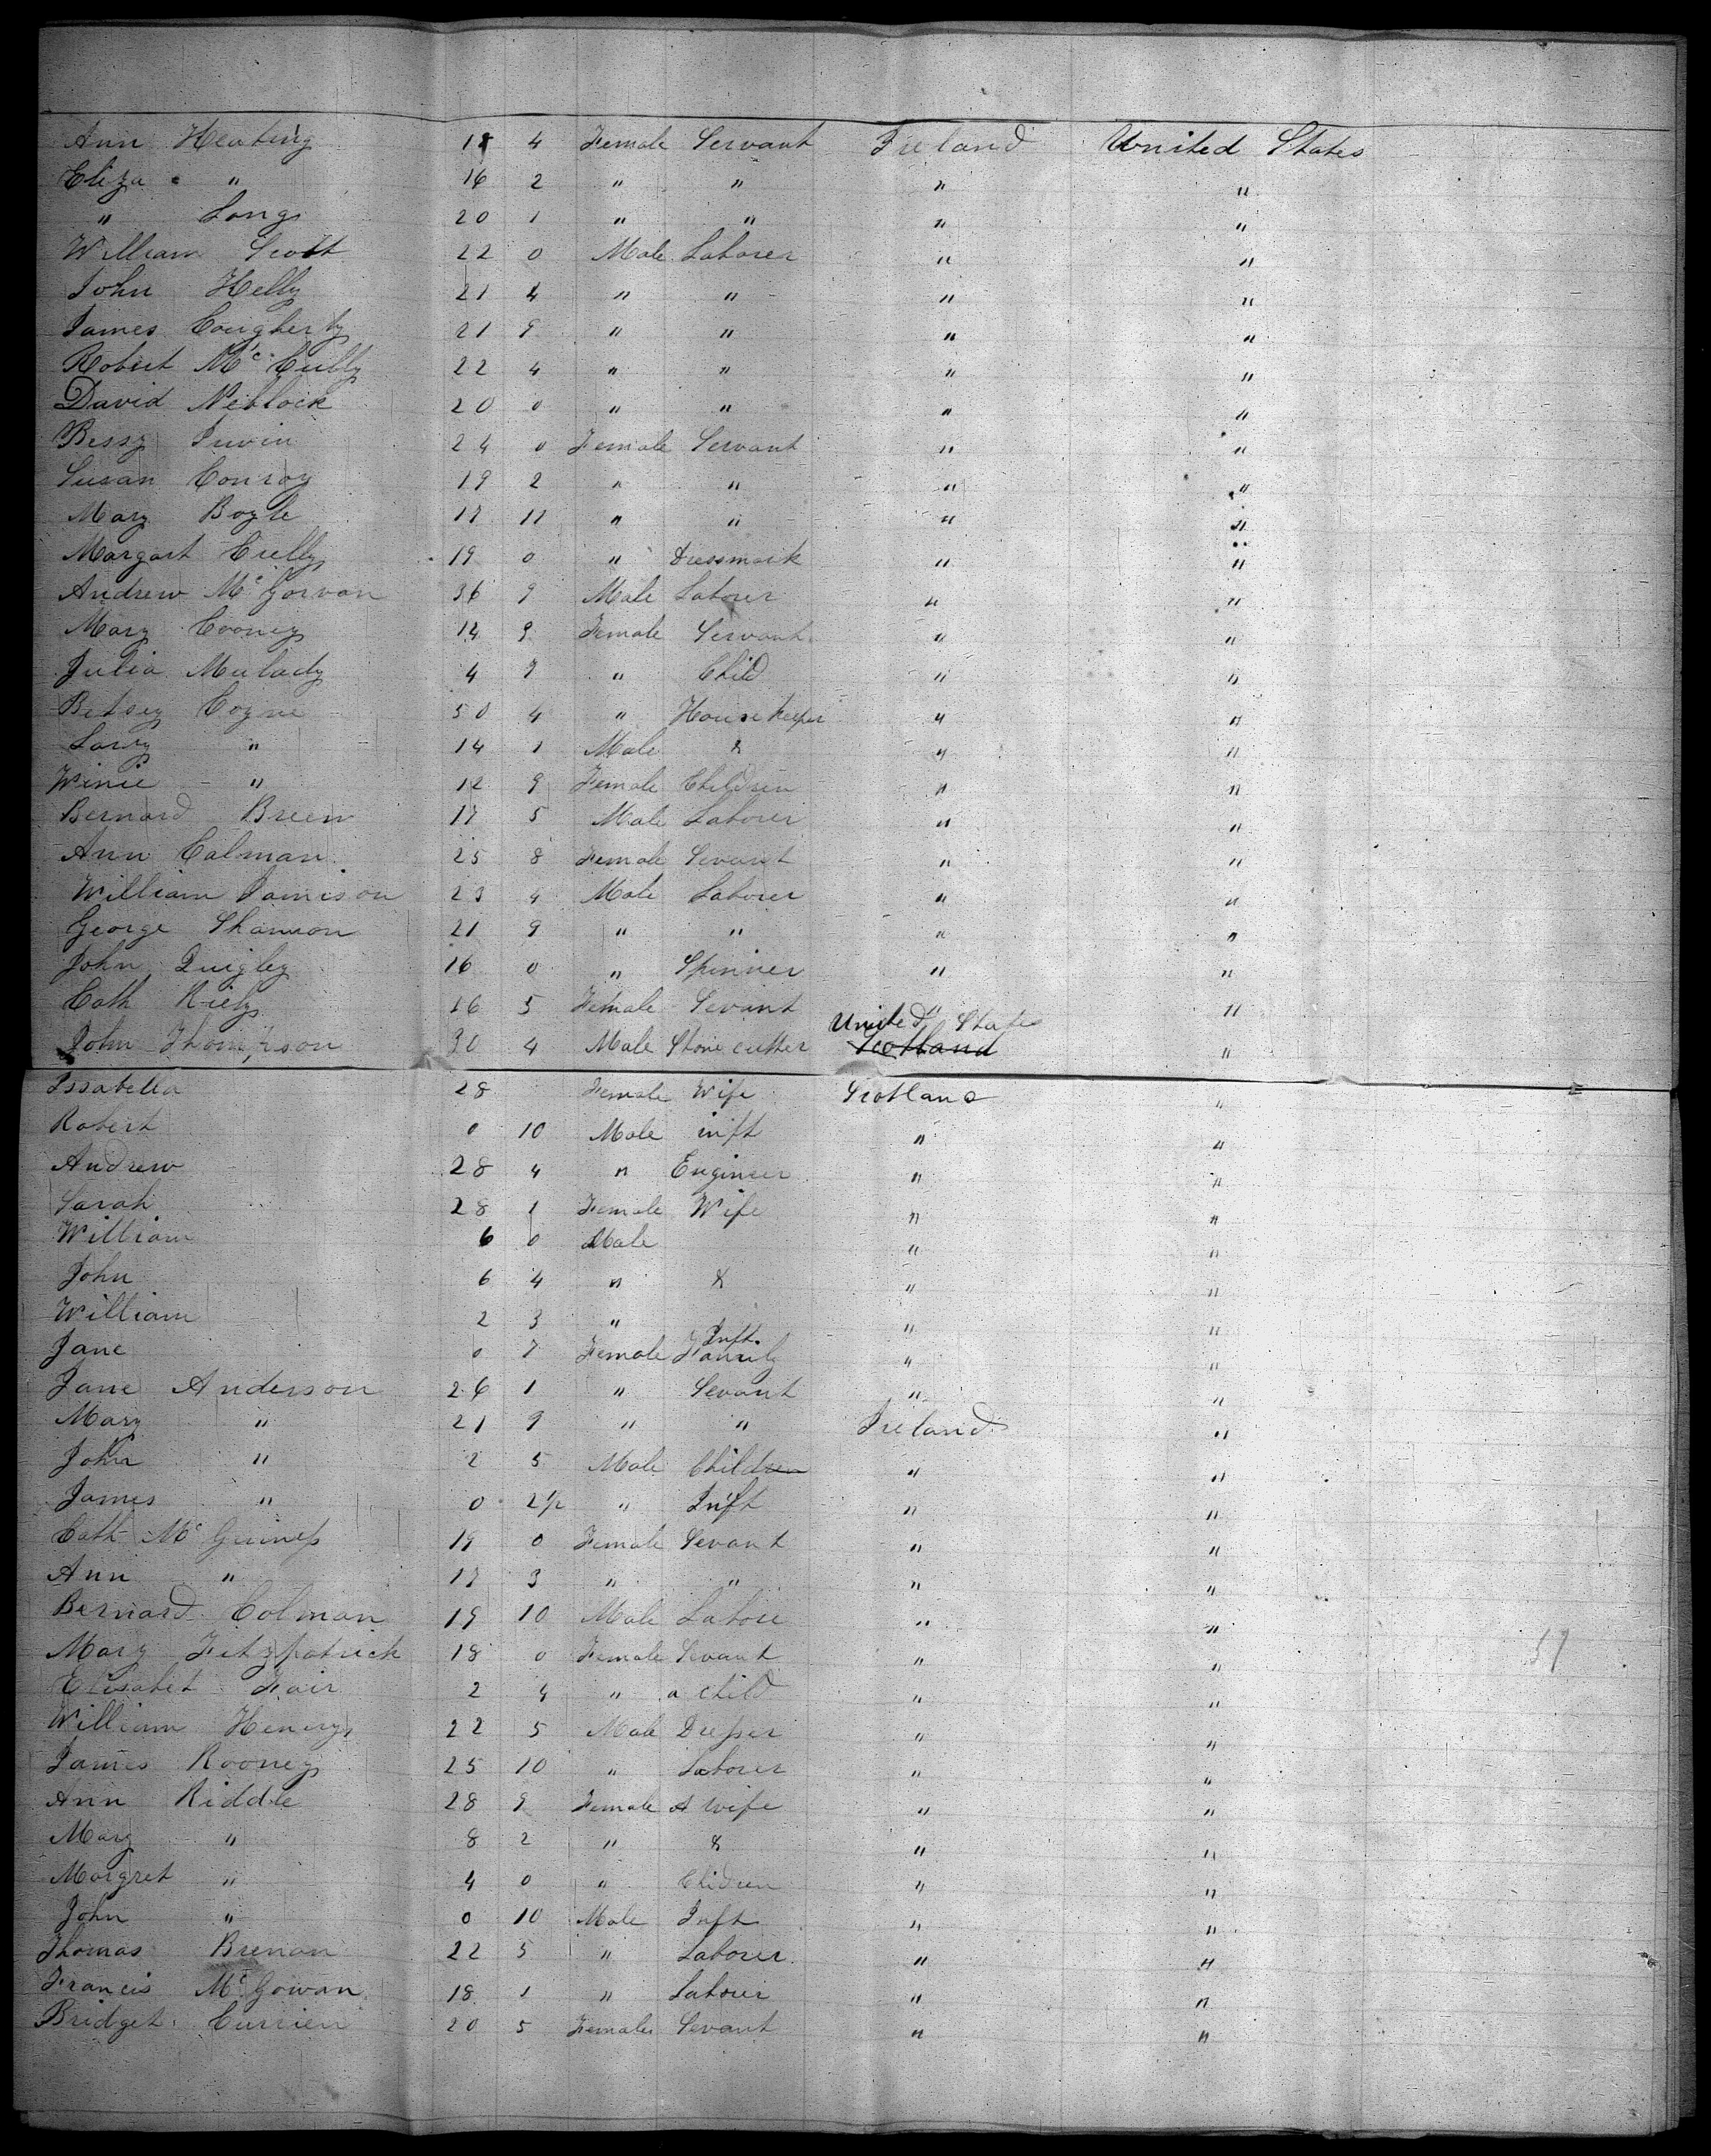 Ann Keating 18 4 Female Servant Ireland United States
Eliza " 16 2 " " " "
" Long 20 1 " " " "
William Scott 22 0 Male Laborer " "
John Kelly 21 4 " " " "
James Cougherty 21 9 " " " "
Robert Mc Cully 22 4 " " " "
David Neblock 20 0 " " " "
Bessy Irwin 24 0 Female Servant " "
Susan Conroy 19 2 " " " "
Mary Boyle 17 11 " " " "
Margart Cully 19 0 " Dressmack " "
Andrew Mc Gorvan 36 9 Male Laborer " "
Mary Cooney 14 9 Female Servant " "
Julia Malady 4 7 " Child " "
Betsey Coyne 50 4 " House keeper " "
Larry " 14 1 Male & " "
Winie " 12 9 Female Children " "
Bernard Breen 17 5 Male Laborer " "
Ann Calman 25 8 Female Sevant " "
William Jamison 23 4 Male Laborer " "
George Shannon 21 9 " " " "
John Quigley 16 0 " Spinner " "
Cath Riely 16 5 Female Sevant " "
United States
John Thompson 30 4 Male Stone cutter Scotland "
Issabella 28 Female Wife Scotland "
Robert 0 10 Male inft " "
Andrew 28 4 " Engineer " "
Sarah 28 1 Female Wife " "
William 6 0 Male " "
John 6 4 " & " "
William 2 3 " " "
Inft.
Jane 0 7 Female Family " "
Jane Anderson 26 1 " Sevant " "
Mary " 21 9 " " Ireland "
John " 2 5 Male Children " "
James " 0 2½ " Inft " "
Cath Mc Guiness 19 0 Female Sevant " "
Ann " 17 3 " " " "
Bernard Colman 19 10 Male Labore " "
Mary Fitzpatrick 18 0 Female Sevant " "
Elisabet Fair 2 4 " a child " "
William Henery 22 5 Male Dresser " "
James Rooney 25 10 " Laborer " "
Ann Riddle 28 9 Female A wife " "
Mary " 8 2 " & " "
Margret " 4 0 " Clidren " "
John " 0 10 Male Inft " "
Thomas Brenan 22 5 " Laborer " "
Francis Mc Gowan 18 1 " Laborer " "
Bridget Currien 20 5 Females Sevant " "